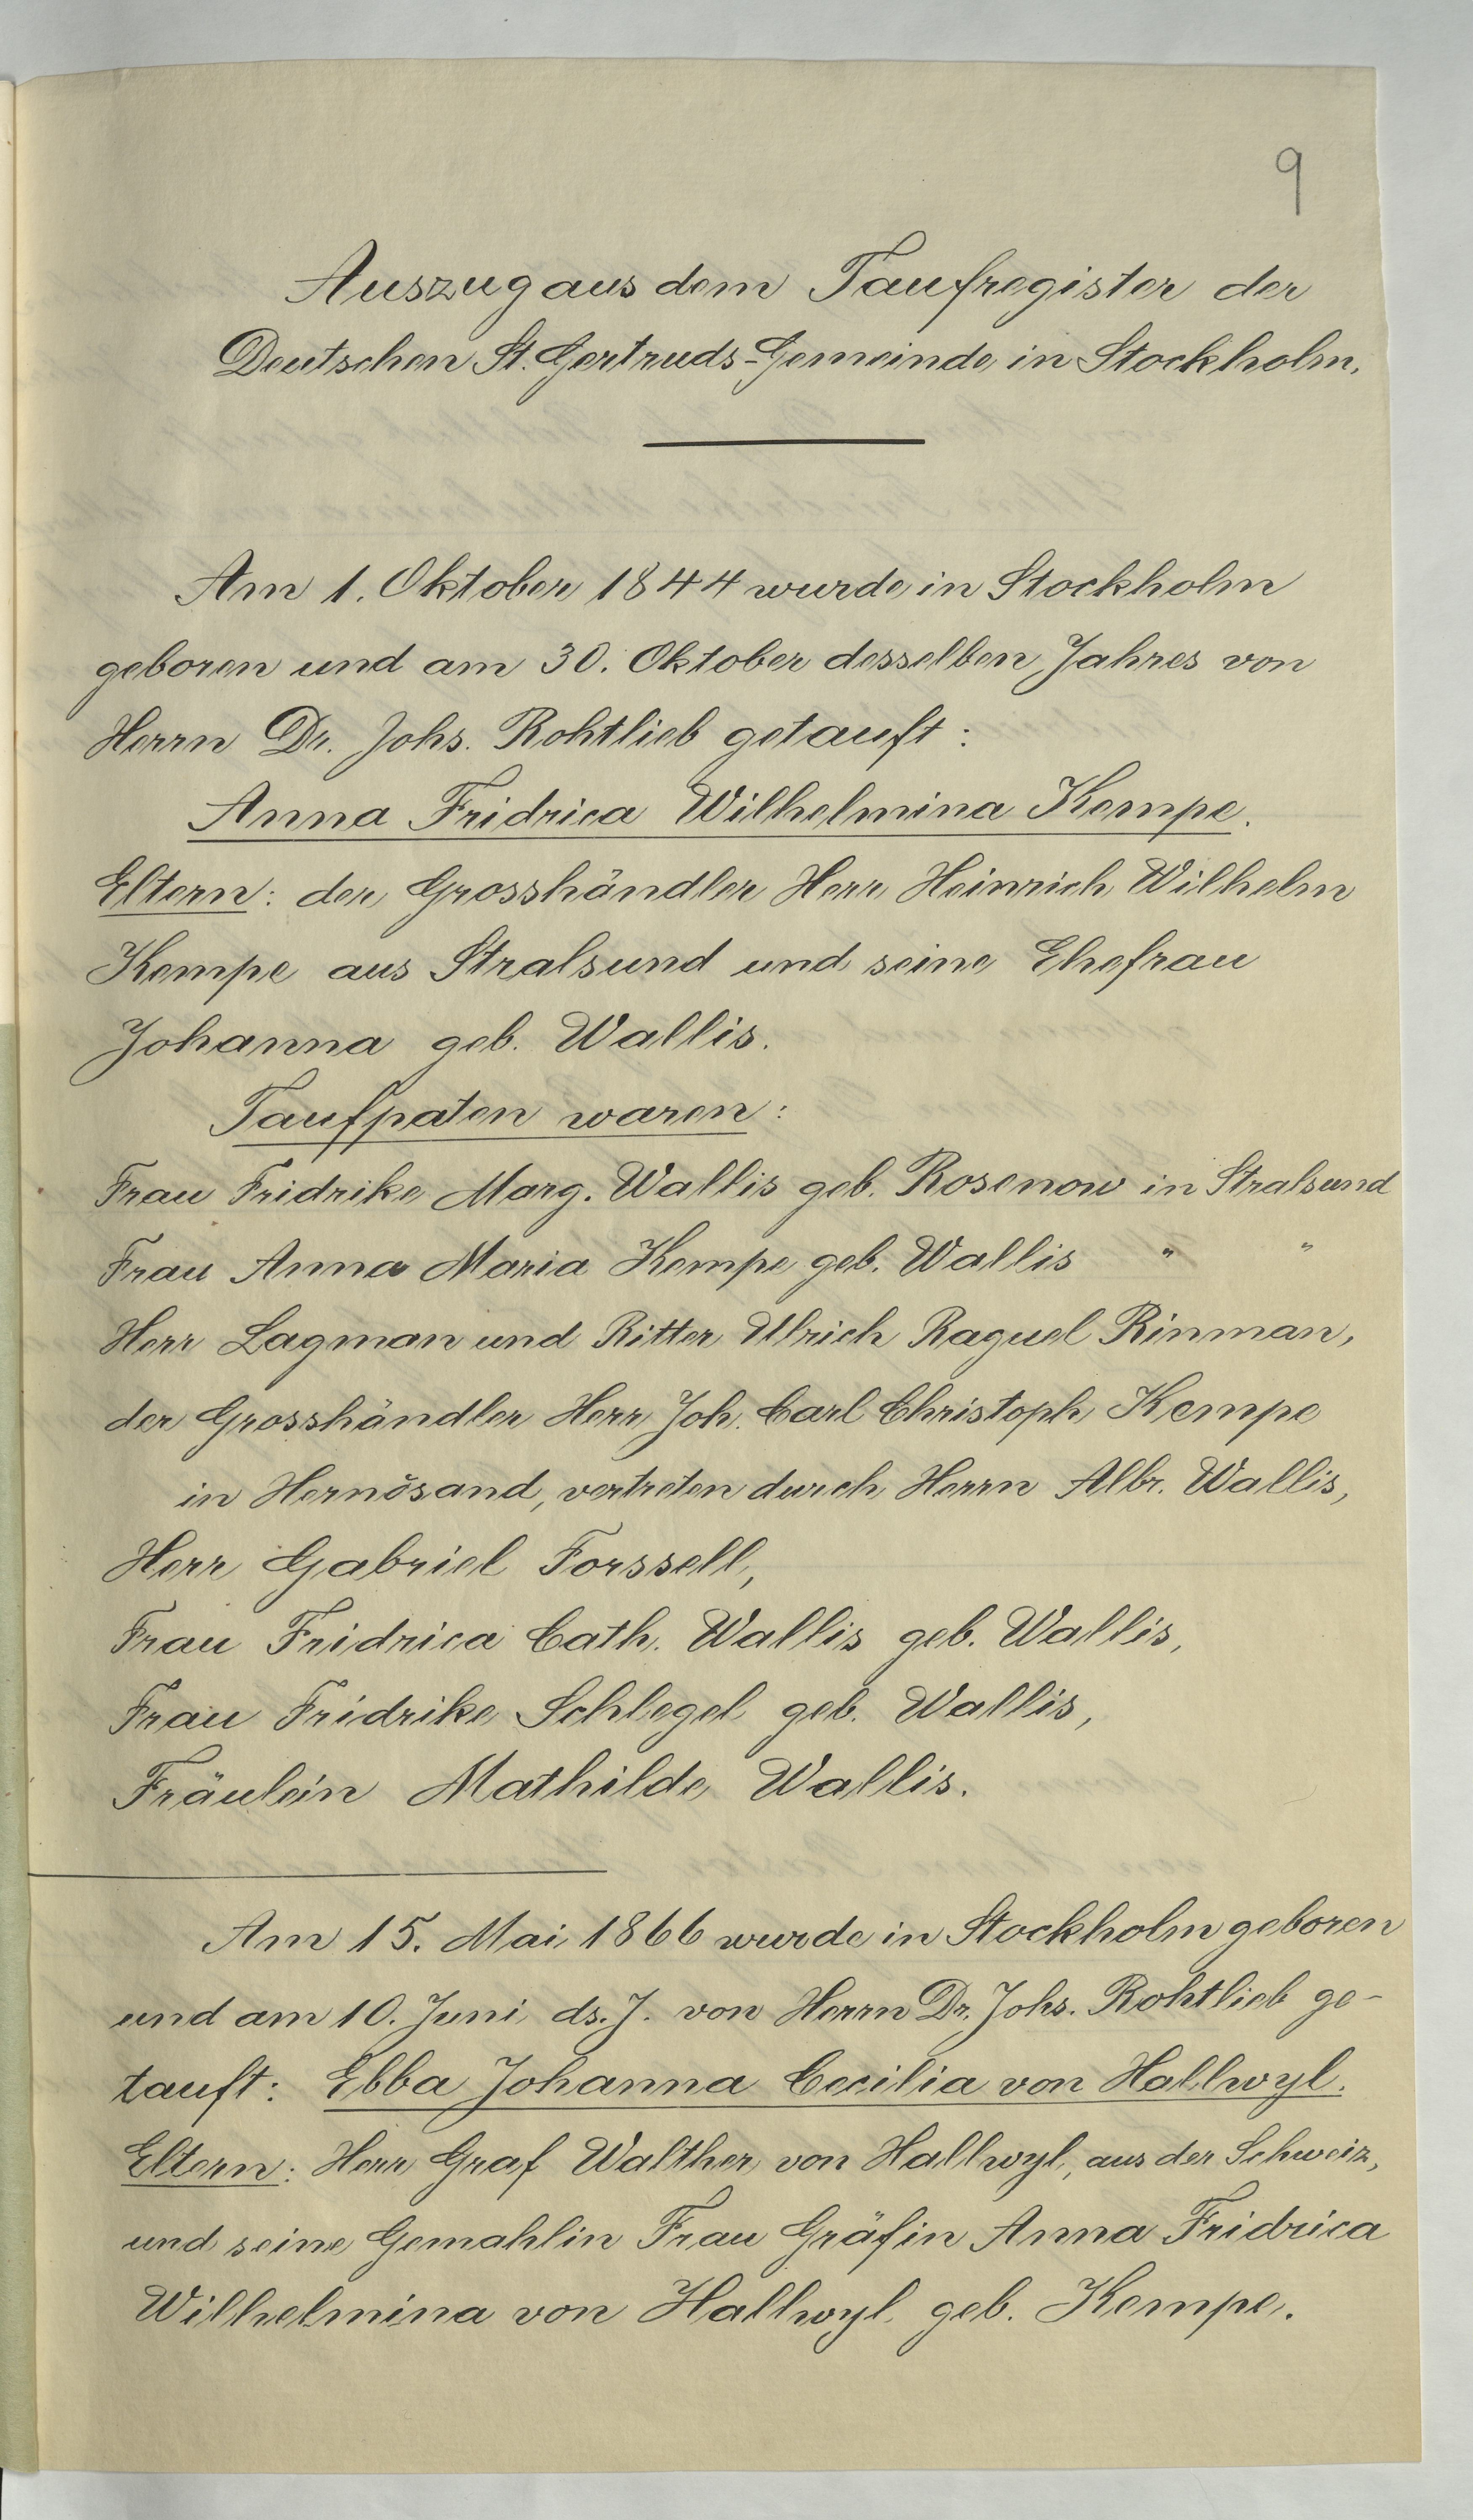 9
Auszug aus dem Taufregister der
Deutschen St. Gertruds-Gemeinde in Stockholm.
Am 1. Oktober 1844 wurde in Stockholm
geboren und am 30. Oktober desselben Jahres von
Herrn Dr. Johs. Rohtlieb getauft:
Anna Fridrica Wilhelmina Kempe.
Eltern: der Grosshändler Herr Heinrich Wilhelm
Kempe aus Stralsund und seine Ehefrau
Johanna geb. Wallis.
Taufpaten waren:
Frau Fridrike Marg. Wallis geb. Rosenow in Stralsund
Frau Anna Maria Kempe geb. Wallis " "
Herr Lagman und Ritter Ulrich Raguel Rinman,
der Grosshändler Herr Joh. Carl Christoph Kempe
in Hernösand, vertreten durch Herrn Albr. Wallis,
Herr Gabriel Forssell,
Frau Fridrica Cath. Wallis geb. Wallis,
Frau Fridrike Schlegel geb. Wallis,
Fräulein Mathilde Wallis.
Am 15. Mai 1866 wurde in Stockholm geboren
und am 10. Juni ds. J. von Herrn Dr. Johs. Rohtlieb ge-
tauft: Ebba Johanna Cecilia von Hallwyl.
Eltern: Herr Graf Walther von Hallwyl, aus der Schweiz,
und seine Gemahlin Frau Gräfin Anna Fridrica
Wilhelmina von Hallwyl geb. Kempe.